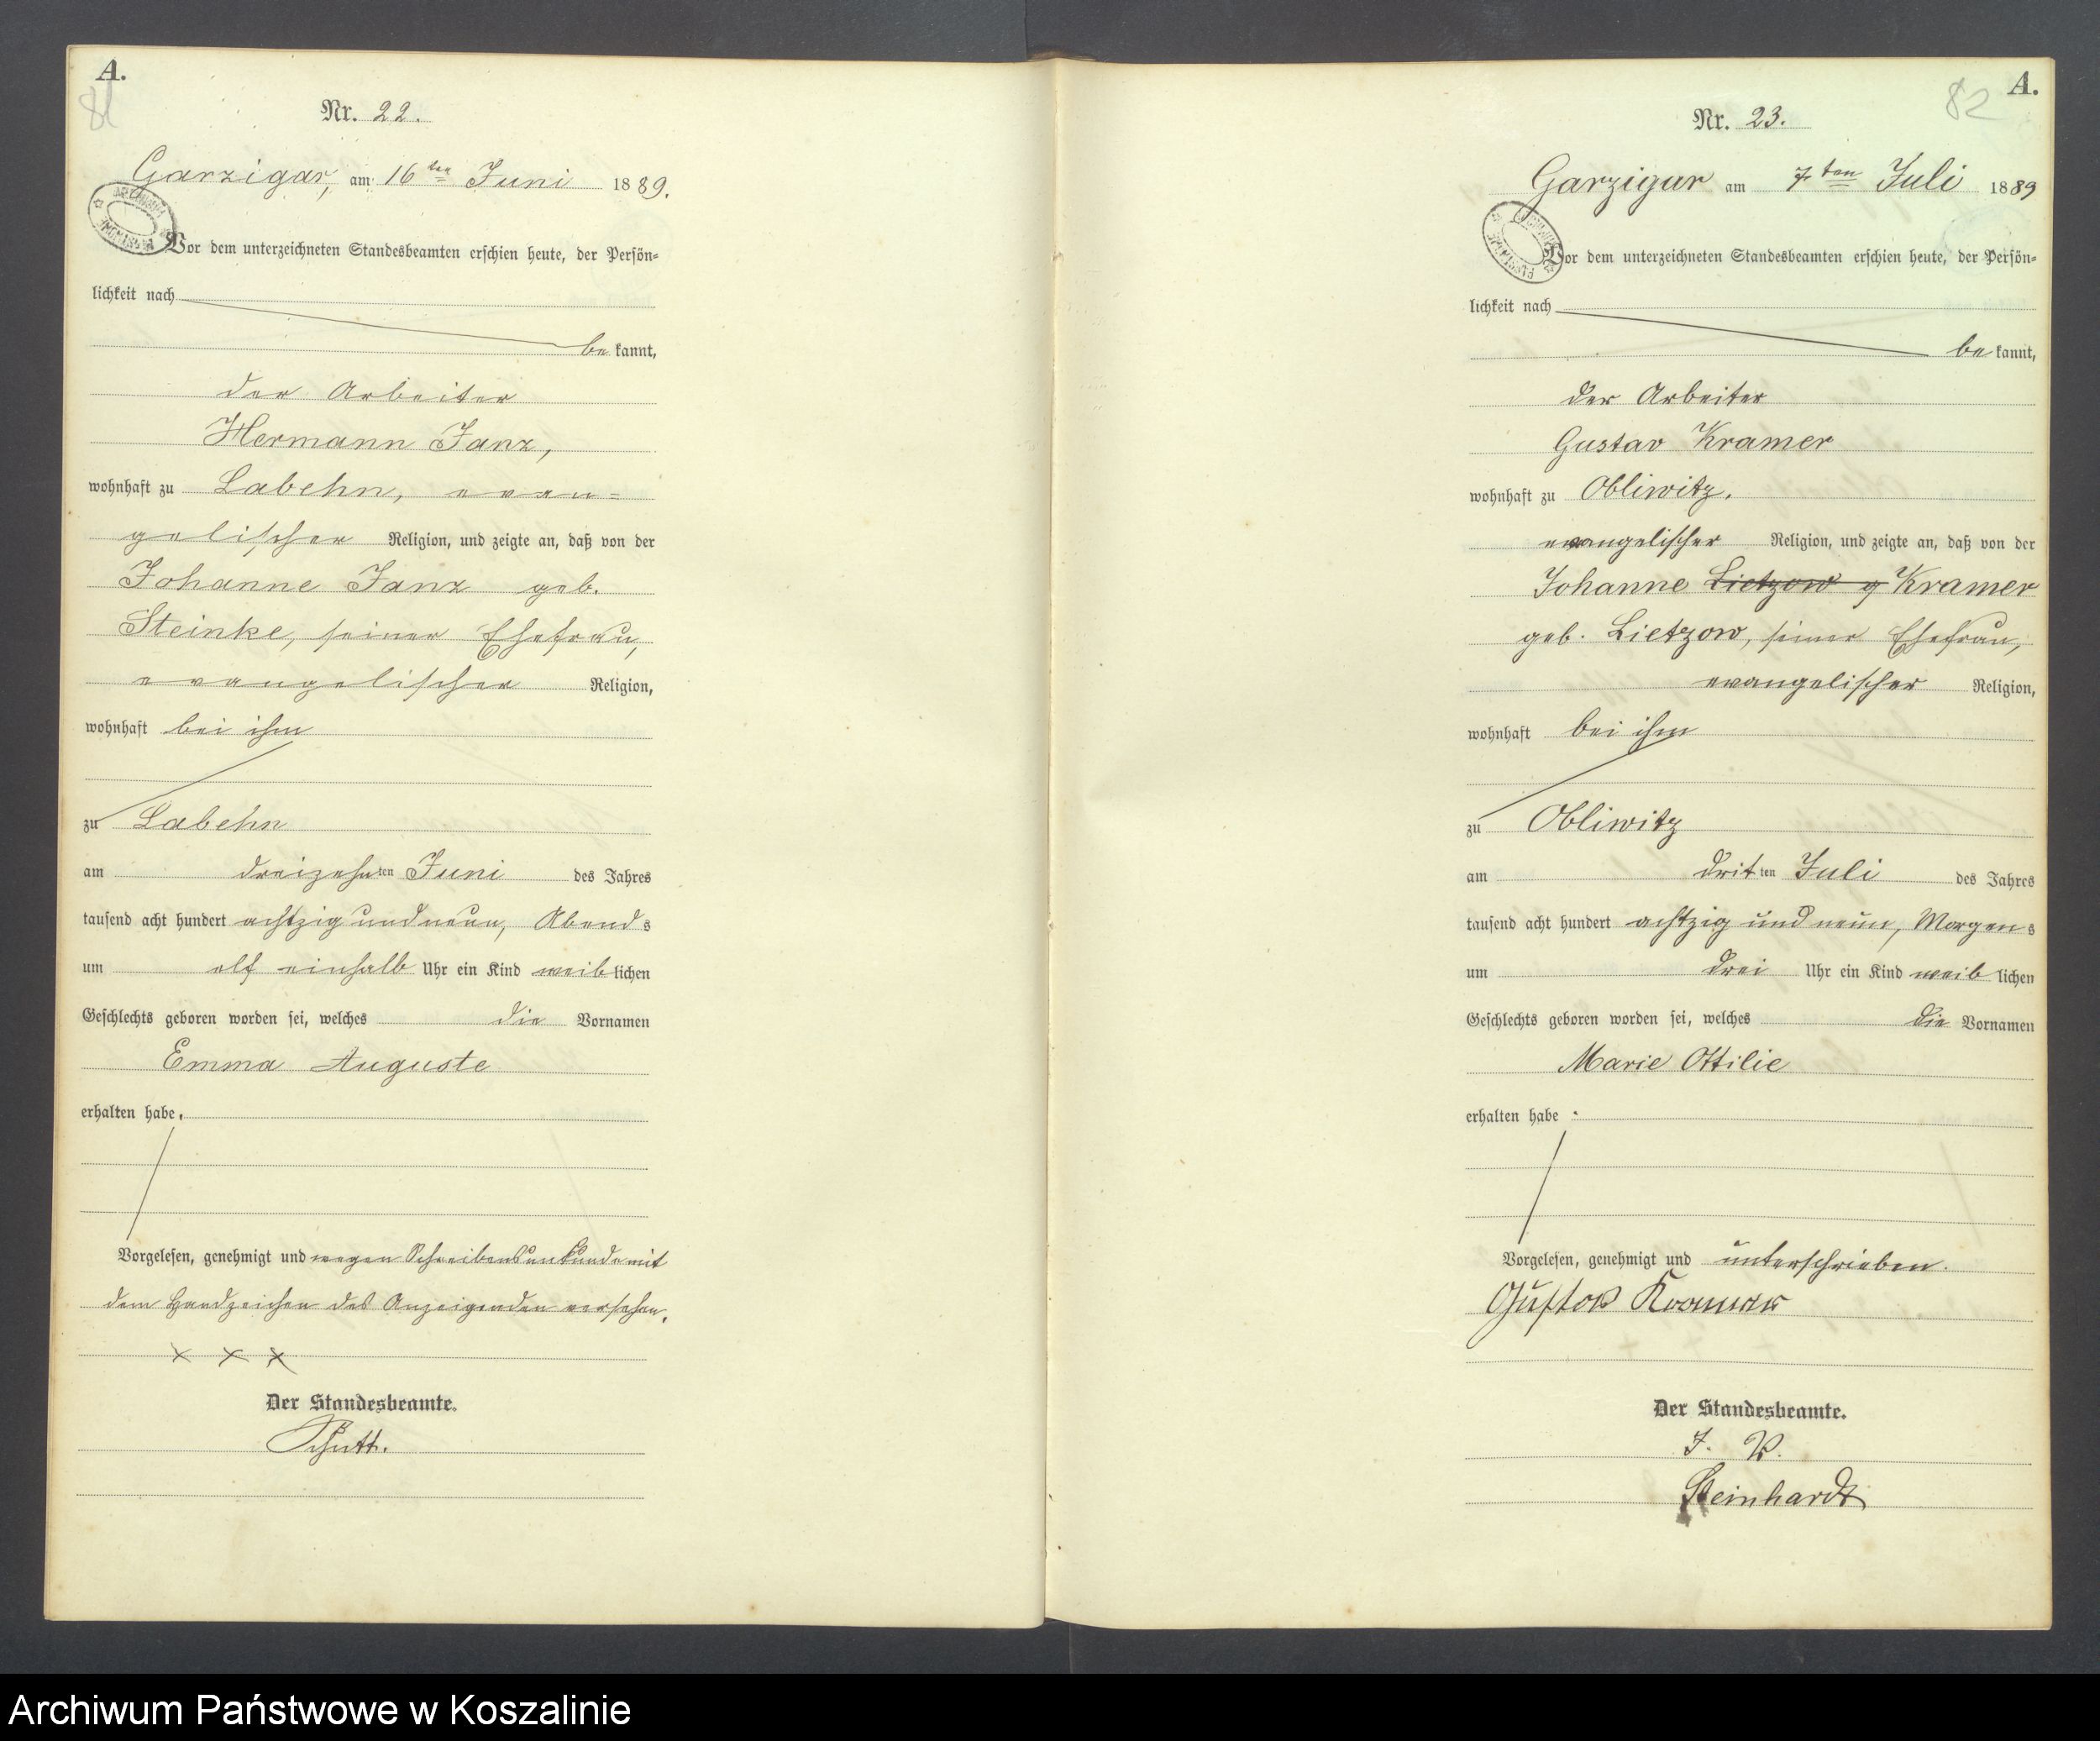 A.
81
Nr. 22.
Garzigar, am 16ten Juni 1889.
Vor dem unterzeichneten Standesbeamten erschien heute, der Persön=
lichkeit nach
bekannt,
der Arbeiter
Hermann Janz,
wohnhaft zu Labehn, evan=
gelischer Religion, und zeigte an, daß von der
Johanne Janz geb.
Steinke, seiner Ehefrau,
evangelischer Religion,
wohnhaft bei ihm
zu Labehn
am dreizehnten Juni des Jahres
tausend acht hundert achtzig und neun, Abends
um elf einhalb Uhr ein Kind weiblichen
Geschlechts geboren worden sei, welches die Vornamen
Emma Auguste
erhalten habe.
Vorgelesen, genehmigt und wegen Schreibensunkunde mit
dem Handzeichen des Anzeigenden versehen.
x x x
Der Standesbeamte.
A.
82
Nr. 23.
Garzigar am 7ten Juli 1889
Vor dem unterzeichneten Standesbeamten erschien heute, der Persön=
lichkeit nach
bekannt,
der Arbeiter
Gustav Kramer
wohnhaft zu Obliwitz.
evangelischer Religion, und zeigte an, daß von der
Johanne Lietzow g Kramer
geb. Lietzow, seiner Ehefrau,
evangelischer Religion,
wohnhaft bei ihm
zu Obliwitz
am dritten Juli des Jahres
tausend acht hundert achtzig und neun, Morgens
um drei Uhr ein Kind weiblichen
Geschlechts geboren worden sei, welches die Vornamen
Marie Ottilie
erhalten habe.
Vorgelesen, genehmigt und unterschrieben.
Gustav Kramer
Der Standesbeamte.
J. V.
Steinhardt
Archiwum Państwowe w Koszalinie